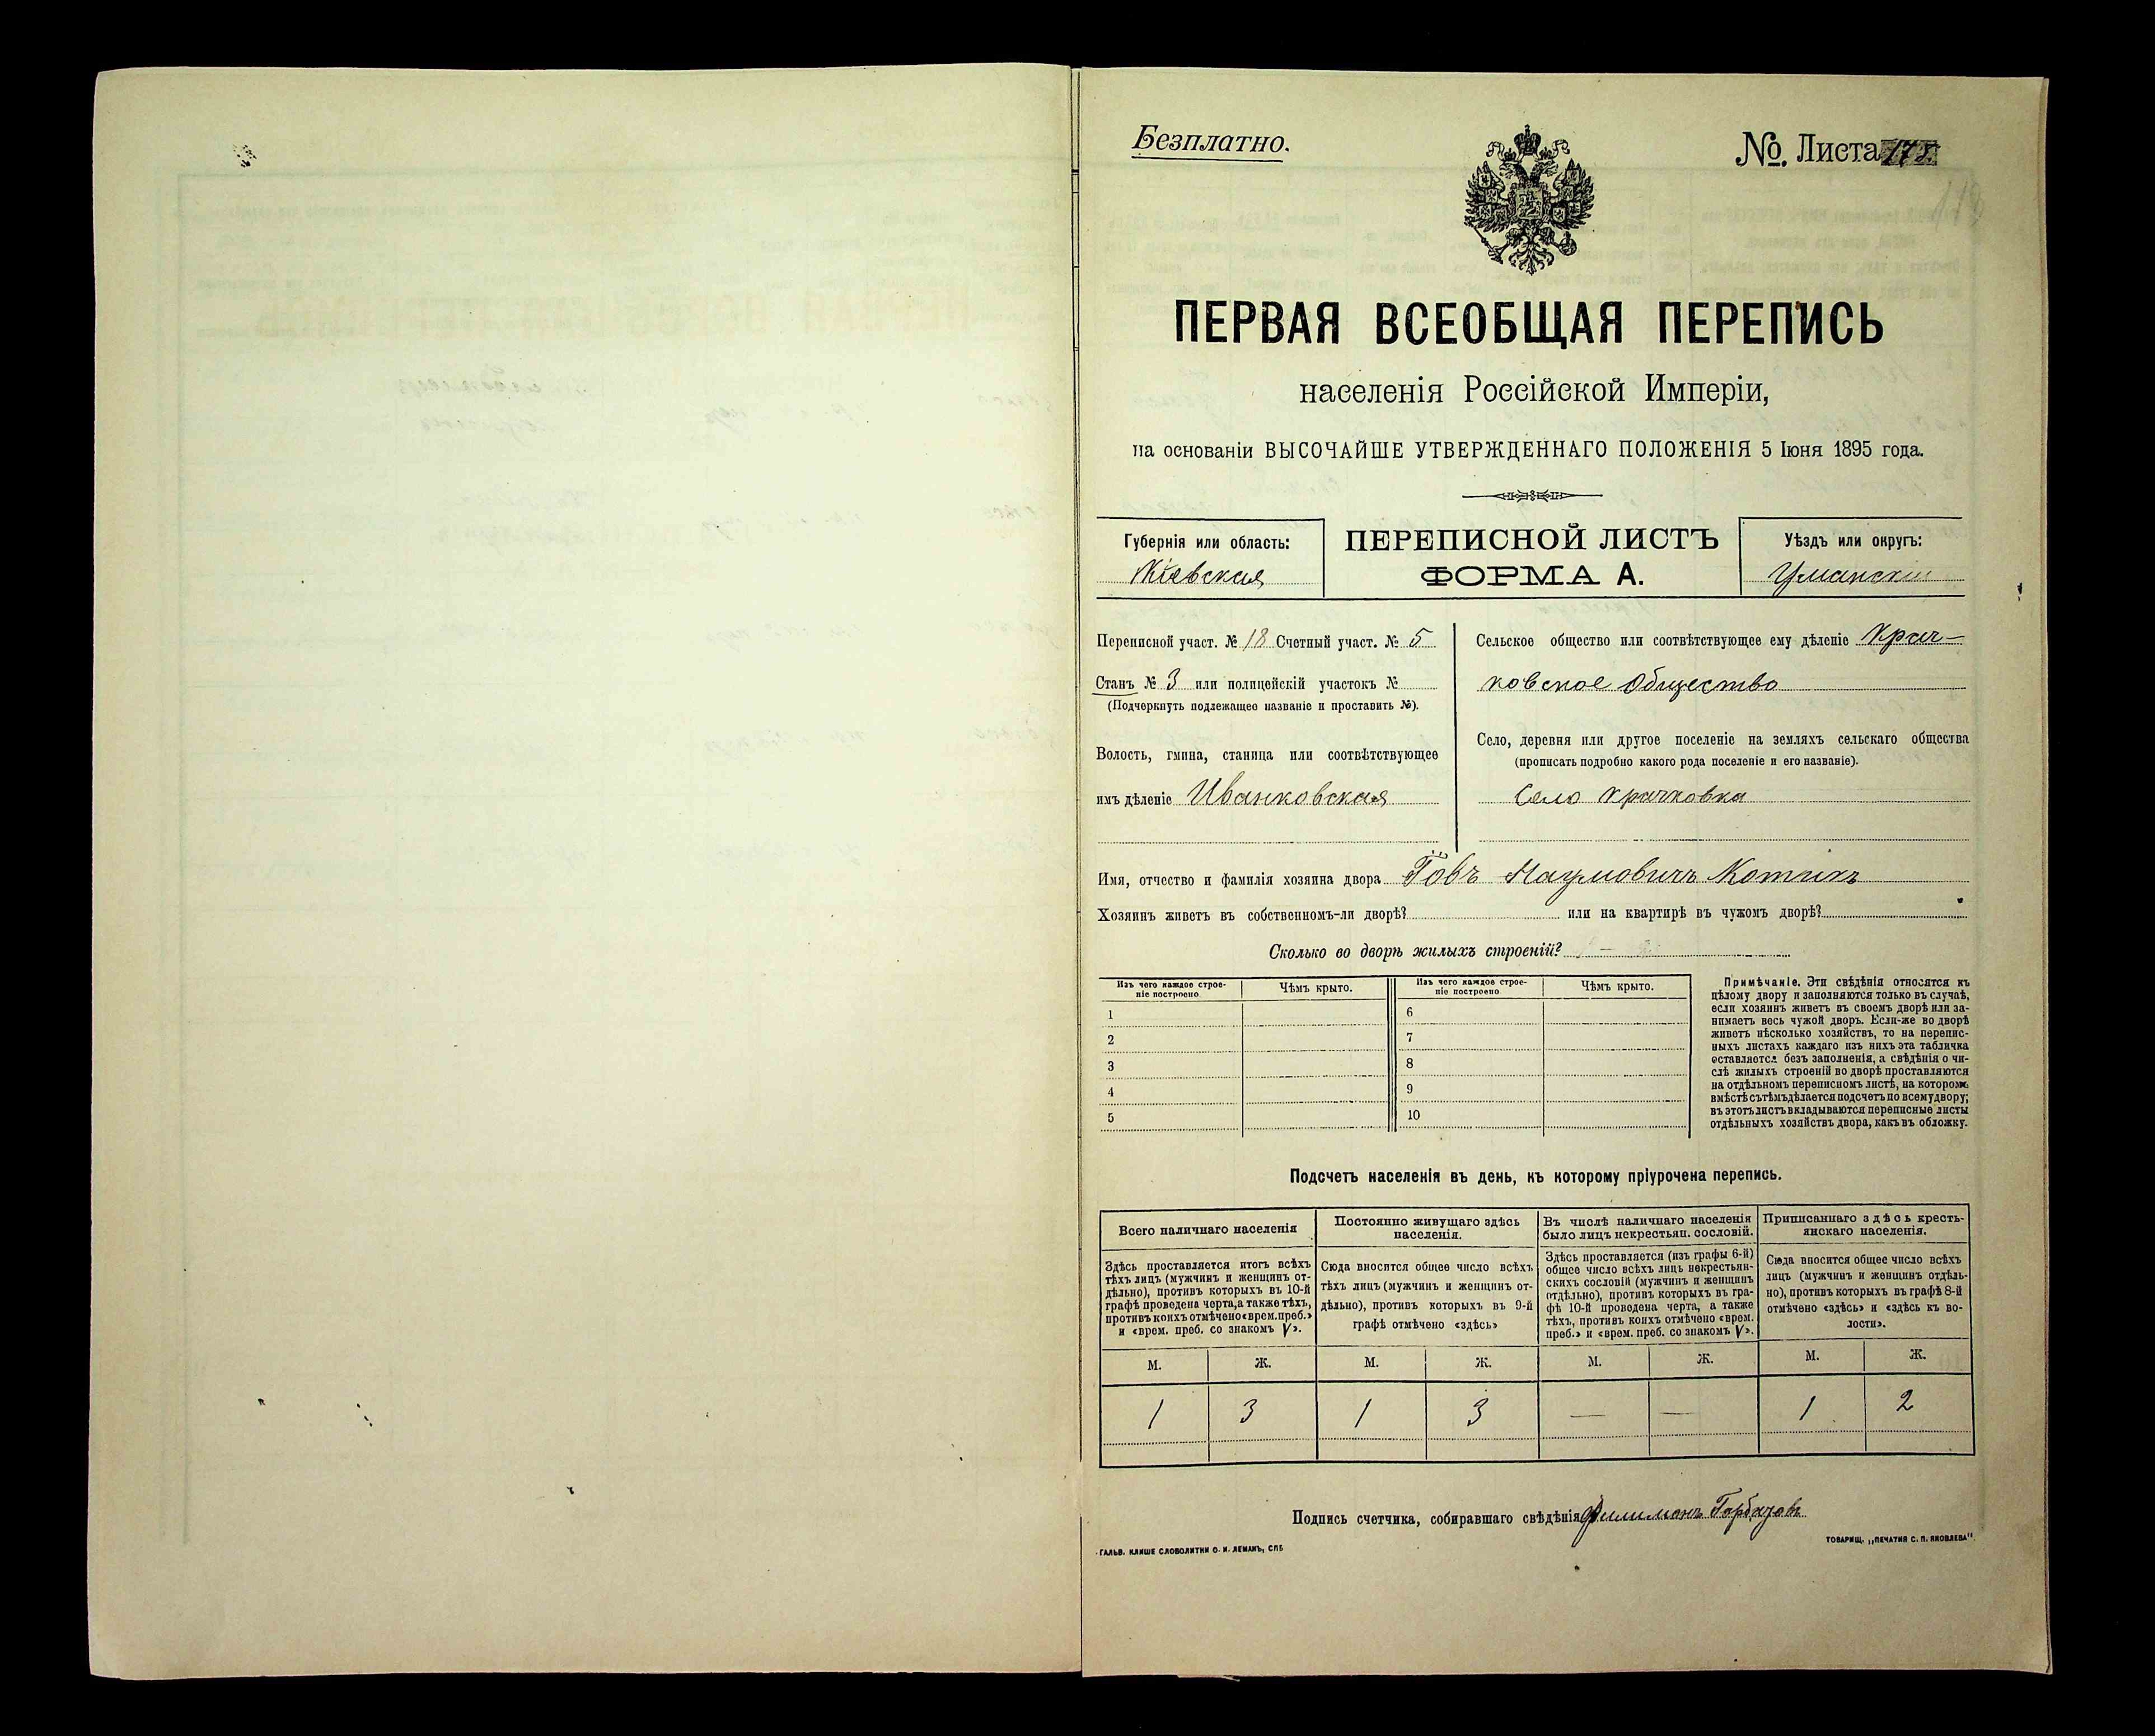 Безплатно.
№ Листа 178.
ПЕРВАЯ ВСЕОБЩАЯ ПЕРЕПИСЬ
населенія Россійской Имперіи,
на основаніи ВЫСОЧАЙШЕ УТВЕРЖДЕННАГО ПОЛОЖЕНІЯ 5 Іюня 1895 года.
Губернія или область:
Кіевская
ПЕРЕПИСНОЙ ЛИСТЪ
ФОРМА А.
Уѣздъ или округъ:
Уманскій
Переписной участ. № 18 Счетный участ. № 5
Станъ № 3 или полицейскій участокъ №
(Подчеркнуть подлежащее названіе и проставить №).
Волость, гмина, станица или соотвѣтствующее
имъ дѣленіе Иванковская
Сельское общество или соотвѣтствующее ему дѣленіе Крач-
ковское Общество
Село, деревня или другое поселеніе на земляхъ сельскаго общества
(прописать подробно какого рода поселеніе и его названіе).
Село Крачковка
Имя, отчество и фамилія хозяина двора Іовъ Наумовичъ
Хозяинъ живетъ въ собственномъ-ли дворѣ? или на квартирѣ въ чужомъ дворѣ?
Сколько во дворѣ жилыхъ строеній?
Изъ чего каждое строе-
ніе построено
Чѣмъ крыто.
Изъ чего каждое строе-
ніе построено
Чѣмъ крыто.
1
2
3
4
5
6
7
8
9
10
Примѣчаніе. Эти свѣдѣнія относятся къ
цѣлому двору и заполняются только въ случаѣ,
если хозяинъ живетъ въ своемъ дворѣ или за-
нимаетъ весь чужой дворъ. Если-же во дворѣ
живетъ нѣсколько хозяйствъ, то на перепис-
ныхъ листахъ каждаго изъ нихъ эта табличка
оставляется безъ заполненія, а свѣдѣнія о чи-
слѣ жилыхъ строеній во дворѣ проставляются
на отдѣльномъ переписномъ листѣ, на которомъ
вмѣстѣ съ тѣмъ дѣлается подсчетъ по всему двору;
въ этотъ листъ вкладываются переписные листы
отдѣльныхъ хозяйствъ двора, какъ въ обложку.
Подсчетъ населенія въ день, къ которому пріурочена перепись.
Всего наличнаго населенія
Здѣсь проставляется итогъ всѣхъ
тѣхъ лицъ (мужчинъ и женщинъ от-
дѣльно), противъ которыхъ въ 10-й
графѣ проведена черта, а также тѣхъ,
противъ коихъ отмѣчено «врем. преб.»
и «врем. преб. со знакомъ V».
Постоянно живущаго здѣсь
населенія.
Сюда вносится общее число всѣхъ
тѣхъ лицъ (мужчинъ и женщинъ от-
дѣльно), противъ которыхъ въ 9-й
графѣ отмѣчено «здѣсь»
Въ числѣ наличнаго населенія
было лицъ некрестьян. сословій.
Здѣсь проставляется (изъ графы 6-й)
общее число всѣхъ лицъ некрестьян-
скихъ сословій (мужчинъ и женщинъ
отдѣльно), противъ которыхъ въ гра-
фѣ 10-й проведена черта, а также
тѣхъ, противъ коихъ отмѣчено «врем.
преб.» и «врем. преб. со знакомъ V».
Приписаннаго здѣсь кресть-
янскаго населенія.
Сюда вносится общее число всѣхъ
лицъ (мужчинъ и женщинъ отдѣль-
но), противъ которыхъ въ графѣ 8-й
отмѣчено «здѣсь» и «здѣсь къ во-
лости».
М. Ж. М. Ж. М. Ж. М. Ж.
1 3 1 3 — — 1 2
Подпись счетчика, собиравшаго свѣдѣнія Филимонъ
ГАЛЬВ. КЛИШЕ СЛОВОЛИТНИ О. И. ЛЕМАНЪ, СПБ
ТОВАРИЩ. „ПЕЧАТНЯ С. П. ЯКОВЛЕВА"